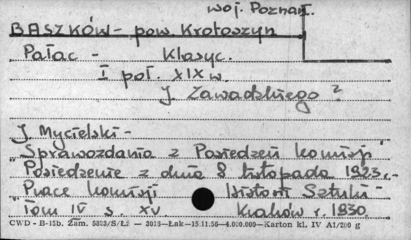 woj. Poznań.
BASZKÓW - pow. Krotoszyn
Pałac - Klasyc.
I poł. XIX w.
J. Zawadzkiego ?
J. Mycielski -
"Sprawozdania z Posiedzeń Komisji"
Posiedzenie z dnia 8 listopada 1923 r. -
"Prace Komisji Historii Sztuki"
Tom IV s. XV Kraków r. 1930.
CWD - B-15b. Zam. 5833/S/Ł2 — 3018—Łak—15.11.56—4.000.000—Karton kl. IV A1/200 g